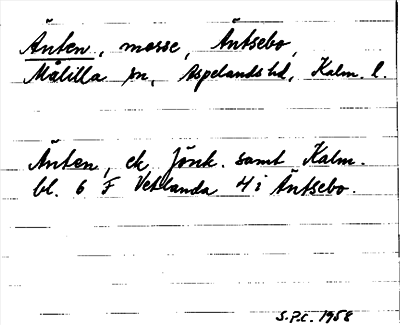 Änten, mosse, Äntsebo,
Målilla sn, Aspelands hd, Kalm. l.
Änten, ek Jönk. samt Kalm.
bl. 6 F Vetlanda 4 i Äntsebo.
S.P.C. 1958